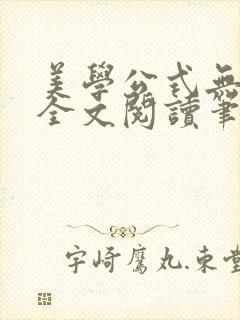 美學公式無
全文閱讀筆
宇崎鷹丸.束堂